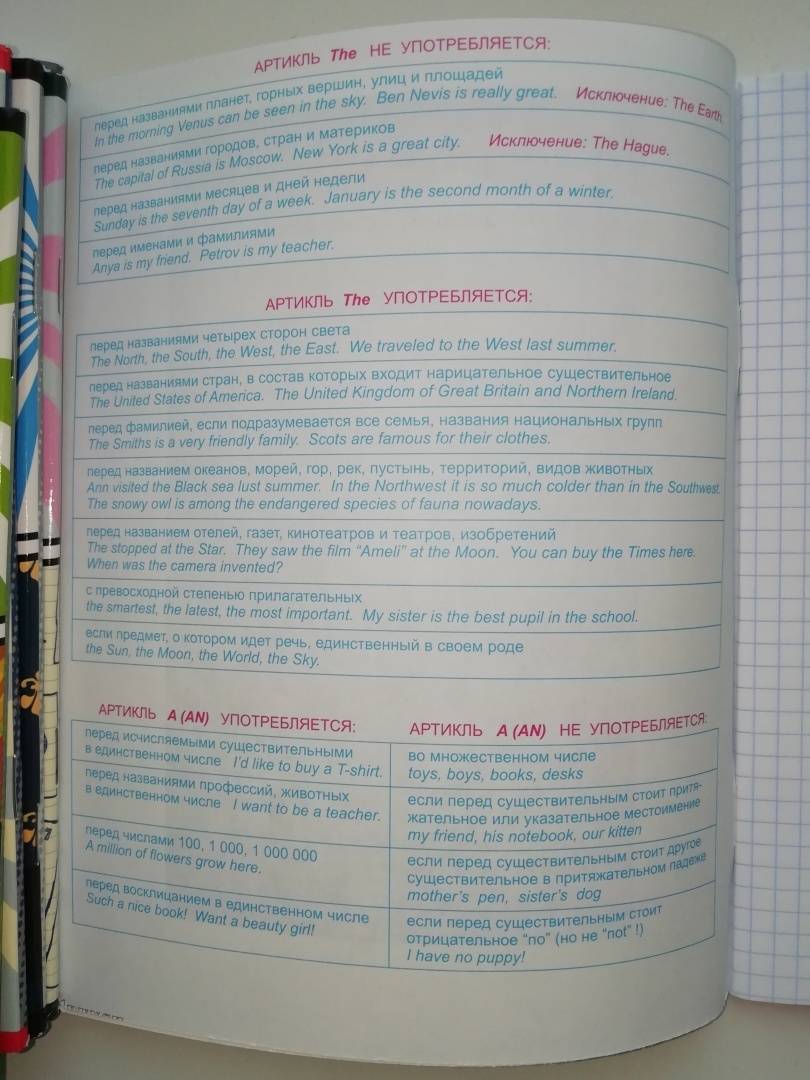 АРТИКЛЬ The НЕ УПОТРЕБЛЯЕТСЯ:
перед названиями планет, горных вершин, улиц и площадей
In the morning Venus can be seen in the sky. Ben Nevis is really great. Исключение: The Earth.
перед названиями городов, стран и материков
The capital of Russia is Moscow. New York is a great city. Исключение: The Hague.
перед названиями месяцев и дней недели
Sunday is the seventh day of a week. January is the second month of a winter.
перед именами и фамилиями
Anya is my friend. Petrov is my teacher.
АРТИКЛЬ The УПОТРЕБЛЯЕТСЯ:
перед названиями четырех сторон света
The North, the South, the West, the East. We traveled to the West last summer.
перед названиями стран, в состав которых входит нарицательное существительное
The United States of America. The United Kingdom of Great Britain and Northern Ireland.
перед фамилией, если подразумевается все семья, названия национальных групп
The Smiths is a very friendly family. Scots are famous for their clothes.
перед названием океанов, морей, гор, рек, пустынь, территорий, видов животных
Ann visited the Black sea lust summer. In the Northwest it is so much colder than in the Southwest.
The snowy owl is among the endangered species of fauna nowadays.
перед названием отелей, газет, кинотеатров и театров, изобретений
The stopped at the Star. They saw the film “Ameli” at the Moon. You can buy the Times here.
When was the camera invented?
с превосходной степенью прилагательных
the smartest, the latest, the most important. My sister is the best pupil in the school.
если предмет, о котором идет речь, единственный в своем роде
the Sun, the Moon, the World, the Sky.
АРТИКЛЬ A (AN) УПОТРЕБЛЯЕТСЯ:
перед исчисляемыми существительными
в единственном числе I’d like to buy a T-shirt.
перед названиями профессий, животных
в единственном числе I want to be a teacher.
перед числами 100, 1 000, 1 000 000
A million of flowers grow here.
перед восклицанием в единственном числе
Such a nice book! Want a beauty girl!
АРТИКЛЬ A (AN) НЕ УПОТРЕБЛЯЕТСЯ:
во множественном числе
toys, boys, books, desks
если перед существительным стоит притя-
жательное или указательное местоимение
my friend, his notebook, our kitten
если перед существительным стоит другое
существительное в притяжательном падеже
mother’s pen, sister’s dog
если перед существительным стоит
отрицательное “no” (но не “not” !)
I have no puppy!